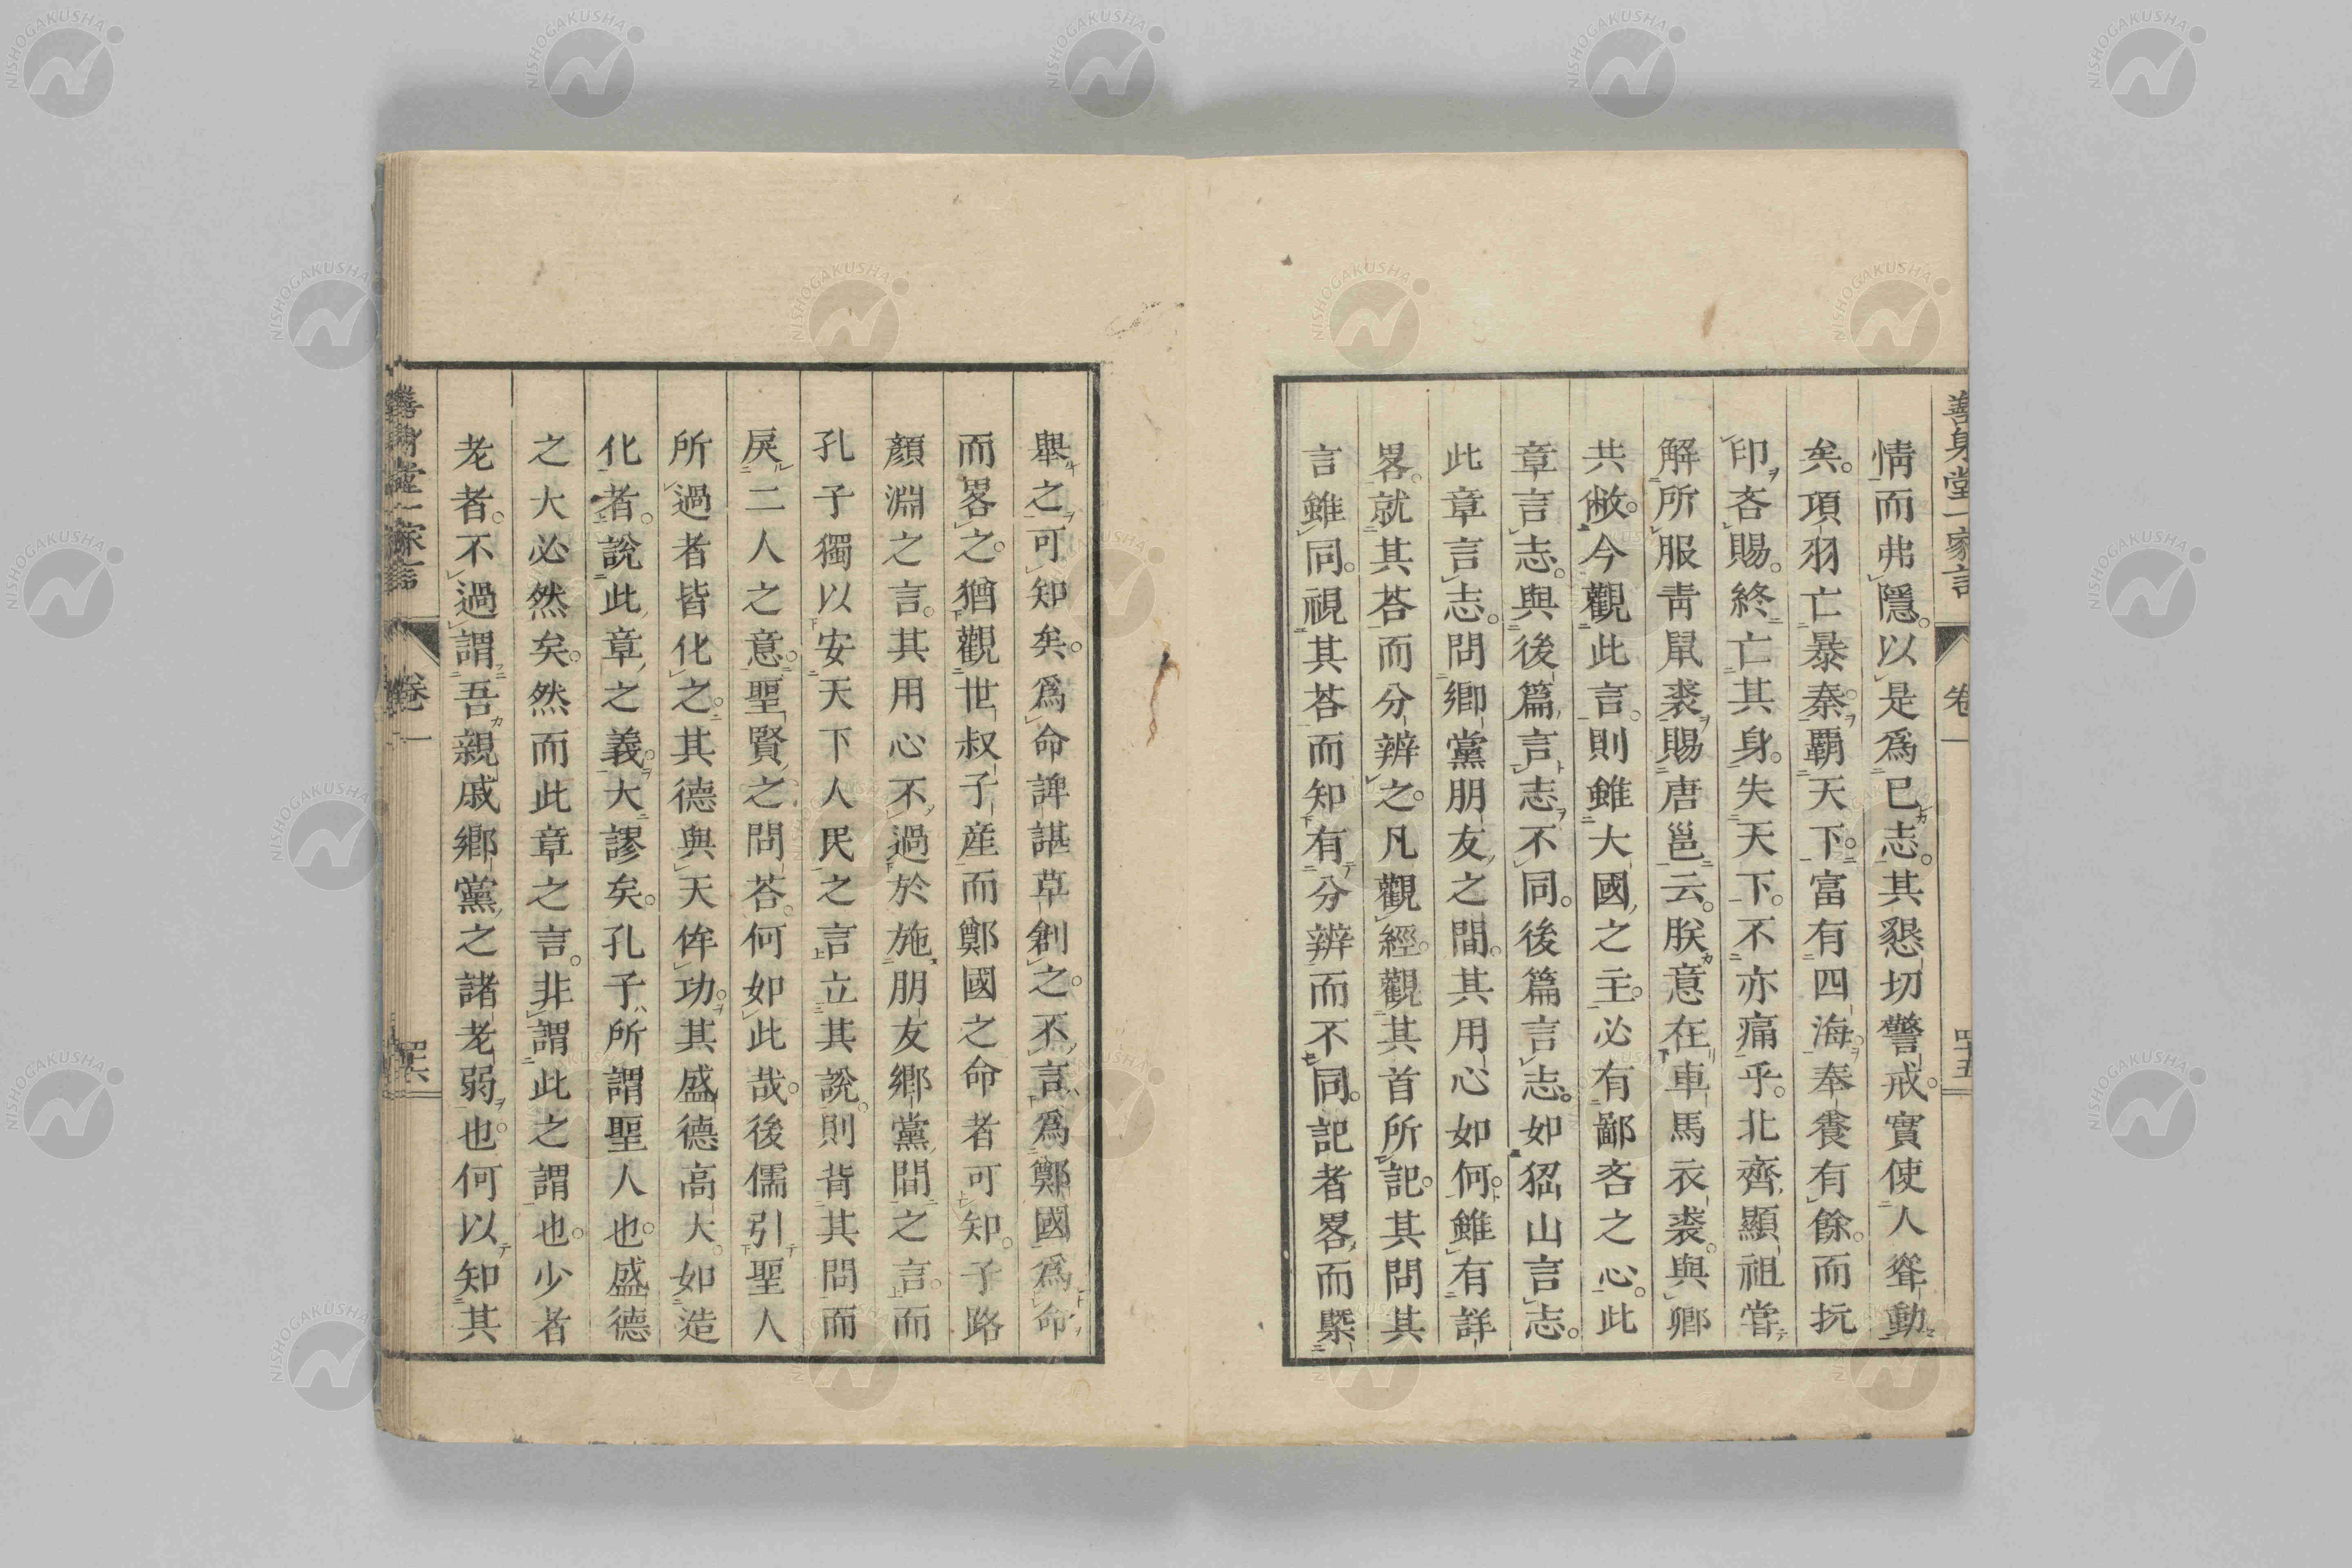 善身堂一家言 卷一 四十五
情而弗隱。以是爲已志。其懇切警戒。實使人聳動
矣。項羽亡暴秦。覇天下。富有四海。奉養有餘。而抏
印吝賜。終亡其身。失天下。不亦痛乎。北齊顯祖甞
解所服靑鼠裘賜唐邕云。朕意在車馬衣裘。與卿
共敝。今觀此言。則雖大國之主。必有鄙吝之心。此
章言志。與後篇言志不同。後篇言志。如猺山言志。
此章言志。問鄕黨朋友之間。其用心如何。雖有詳
畧。就其荅而分辨之。凡觀經。觀其首所記。其問其
言雖同。視其荅而知有分辨而不同。記者畧而槩
舉之。可知矣。爲命諀諶草創之。不言爲鄭國爲命
而畧之。猶觀世叔子産而鄭國之命者可知。子路
顏淵之言。其用心不過於施朋友鄕黨間之言。而
孔子獨以安天下人民之言立其說。則背其問而
戾二人之意。聖賢之問荅。何如此哉。後儒引聖人
所過者皆化之。其德與天侔功。其盛德高大。如造
化者。說此章之義。大謬矣。孔子所謂聖人也。盛德
之大必然矣。然而此章之言。非謂此之謂也。少者
老者。不過謂吾親戚鄕黨之諸老弱也。何以知其
善身堂一家言 卷一 四十六
NISHOGAKUSHA